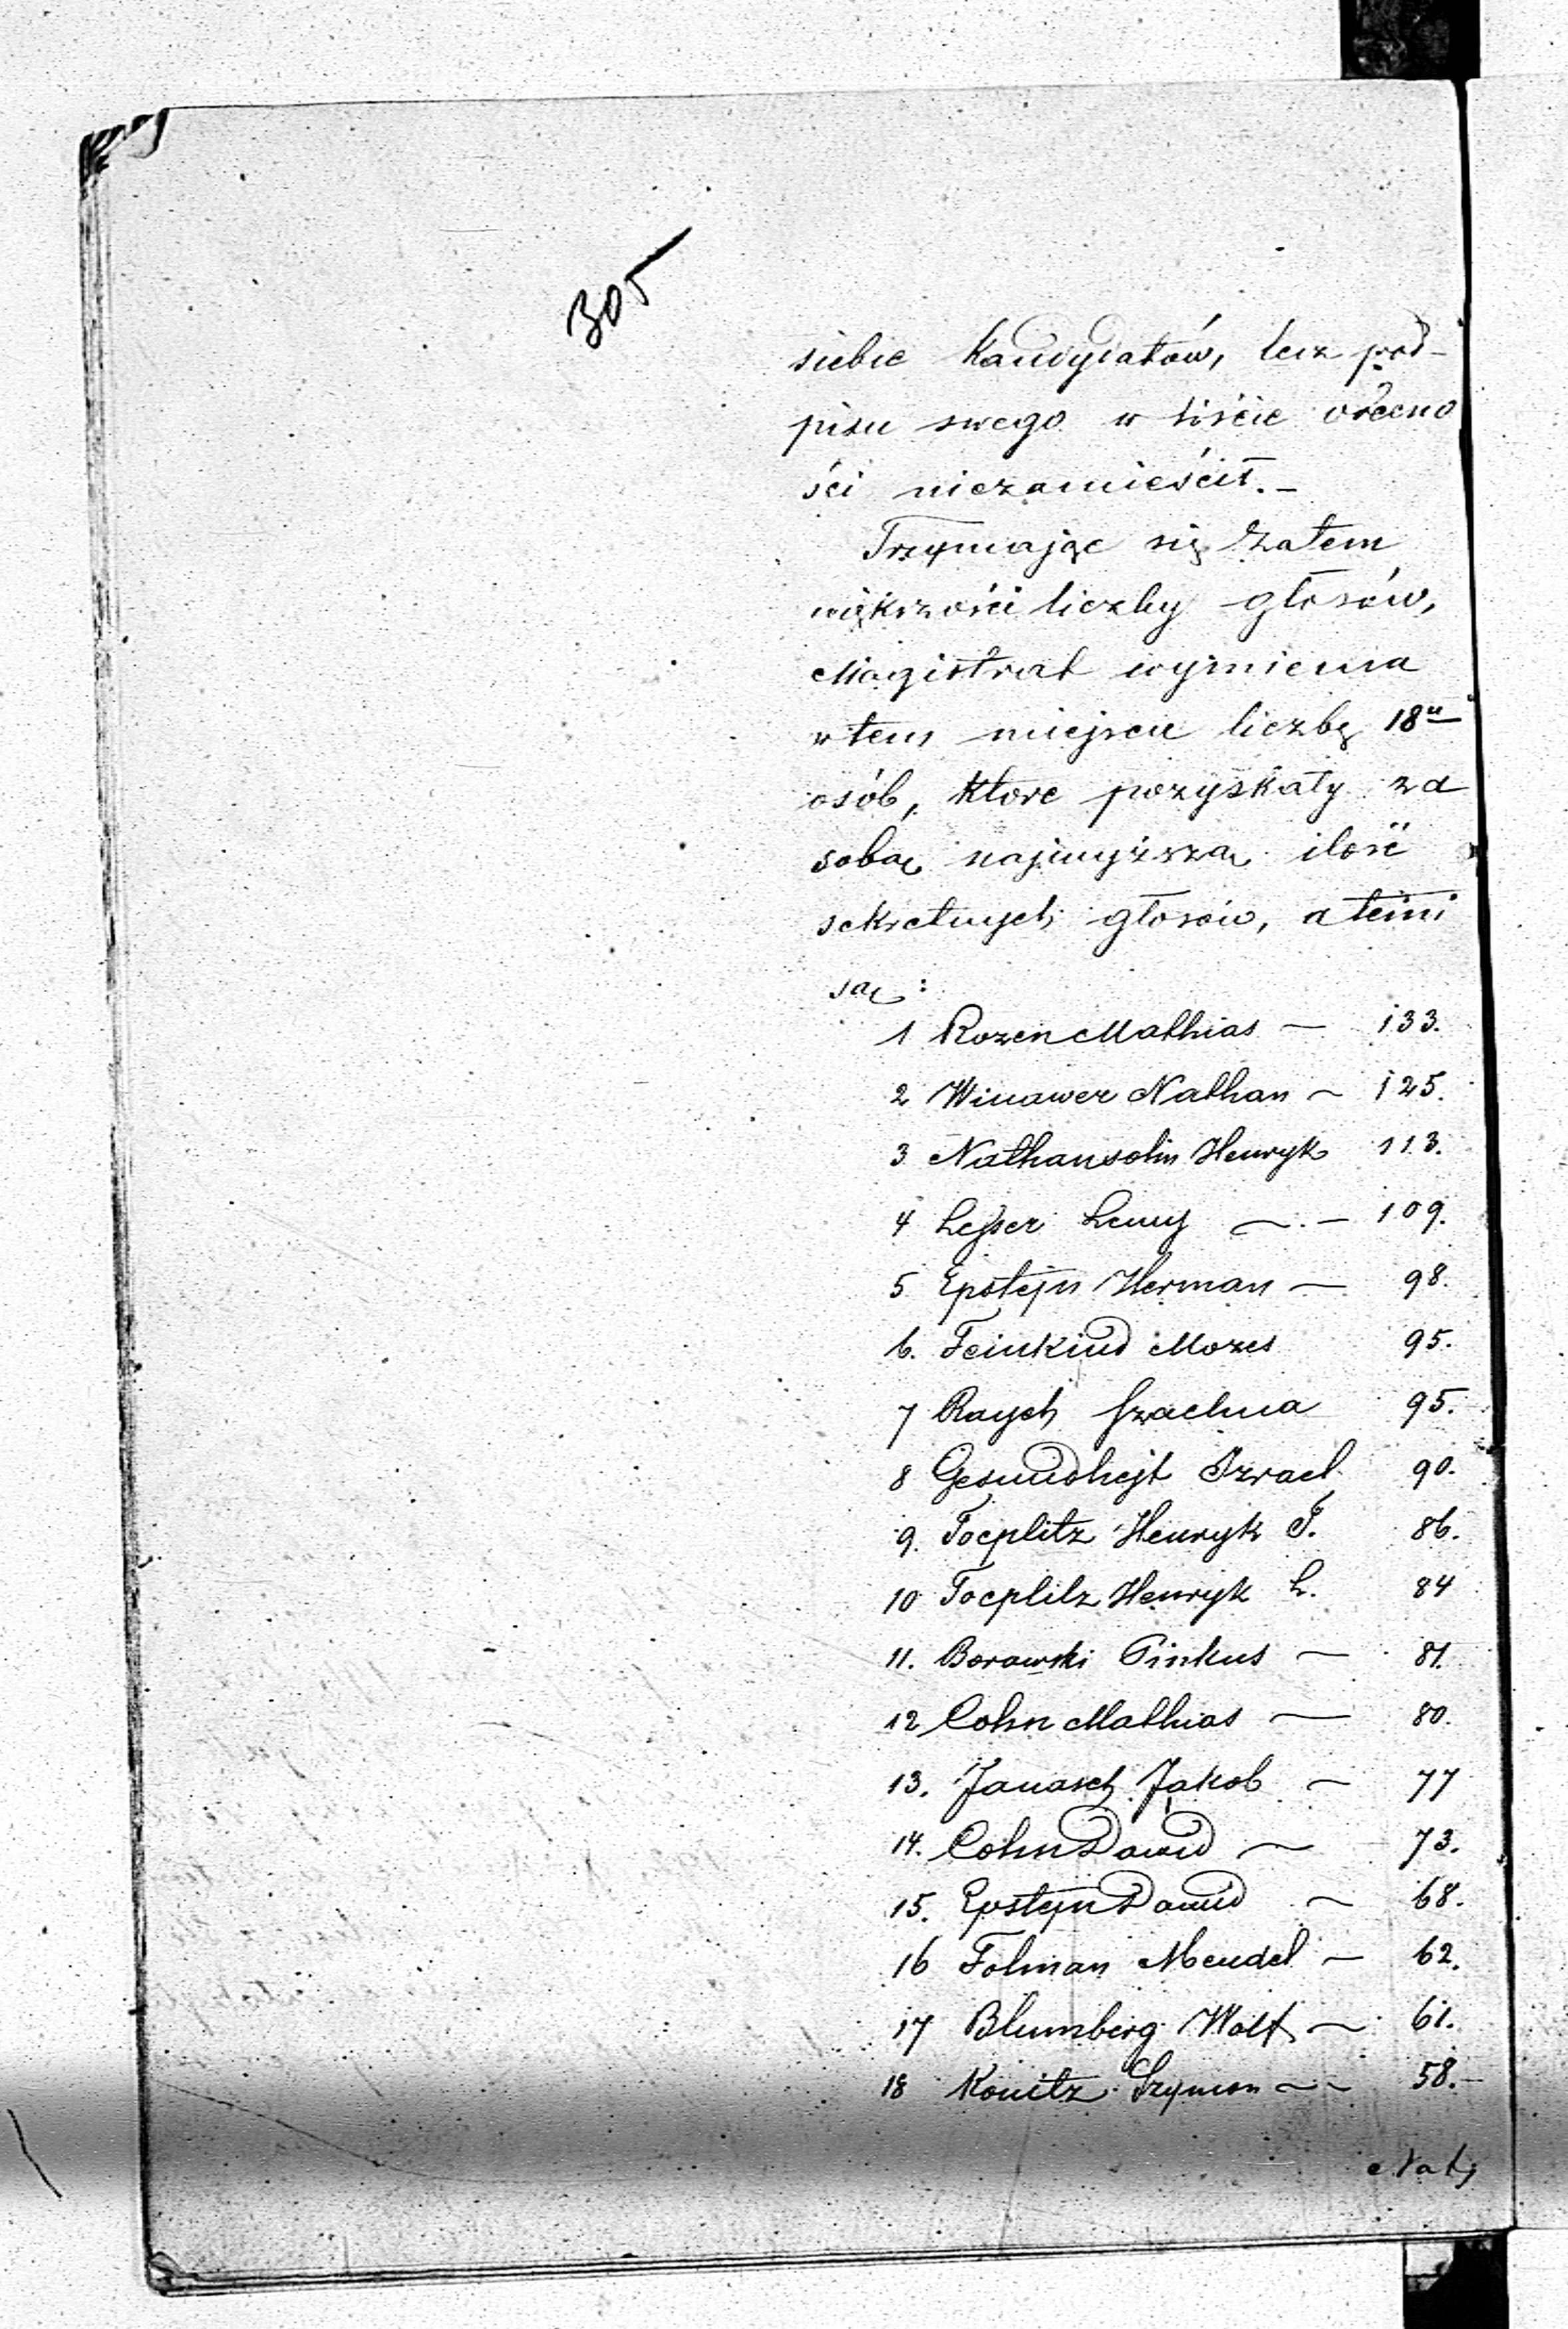 305
siebie Kandydatów, lecz pod-
pisu swego w liście obecno
ści niezamieścił. –
Trzymając się zatem
większości liczby głosów,
Magistrat wymienia
w tem miejscu liczbę 18u
osób, które pozyskały za
sobą najwyższą ilość
sekretnych głosów, a temi
są :
1 Rozen Mathias — 133.
2 Winawer Nathan — 125.
3 Nathansohn Henryk 113.
4 Lesser Lewy — . — 109.
5 Epstejn Herman — 98.
6. Feinkind Mozes 95.
7 Raych Szachna 95.
8 Gesundhejt Izrael 90.
9. Toeplitz Henryk T. 86.
10 Toeplitz Henryk L. 84
11. Borawski Pinkus — 81.
12 Cohn Mathias — 80.
13. Janasch Jakob — 77
14. Cohn Dawid — 73.
15. Epstejn Dawid — 68.
16 Folman Mendel — 62.
17 Blumberg Wolf — 61.
18 Konitz Szymon — — 58. –